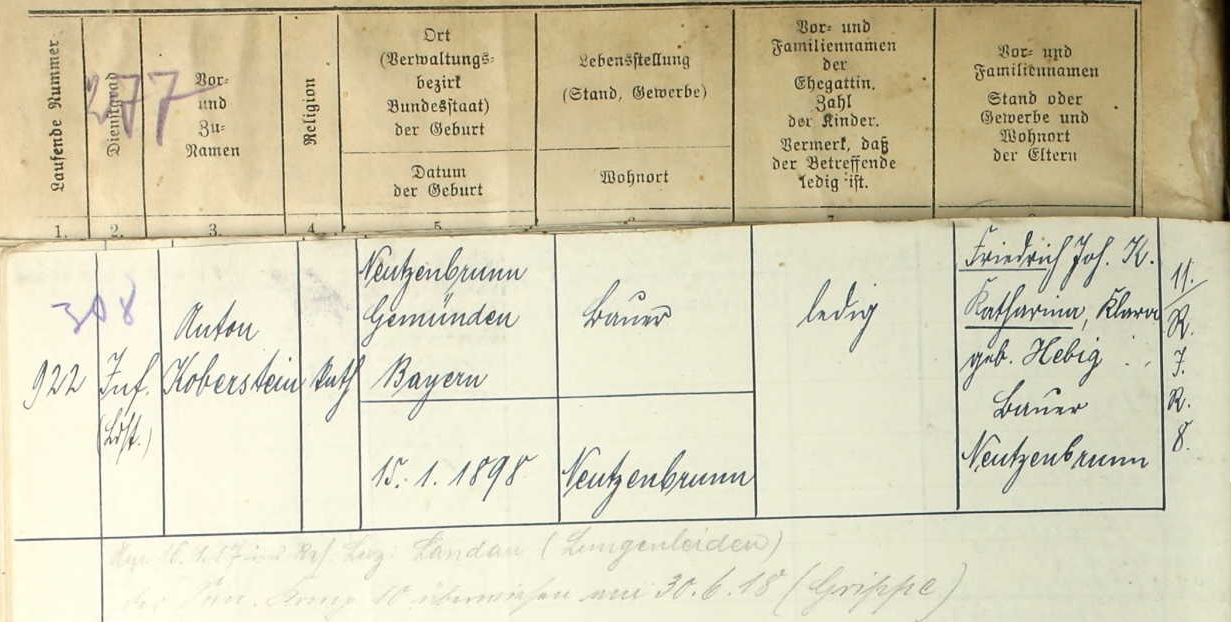 Laufende Nummer
Dienstgrad
277
Vor-
und
Zu-
Namen
Religion
Ort
(Verwaltungs-
bezirk
Bundesstaat)
der Geburt
Datum
der Geburt
Lebensstellung
(Stand, Gewerbe)
Wohnort
Vor- und
Familiennamen
der
Ehegattin.
Zahl
der Kinder.
Vermerk, daß
der Betreffende
ledig ist.
Vor- und
Familiennamen
Stand oder
Gewerbe und
Wohnort
der Eltern
1.
2.
3.
4.
5.
308
922
Inf.
(Ldst.)
Anton
Koberstein
Kath
Neutzenbrunn
Gemünden
Bayern
15. 1. 1898
Bauer
Neutzenbrunn
ledig
Friedrich Joh. K.
Katharina, Klara
geb. Hebig
Bauer
Neutzenbrunn
11.
R.
I.
R.
8.
Landau (Lungenleiden)
überwiesen am 30.6.18 (Grippe)